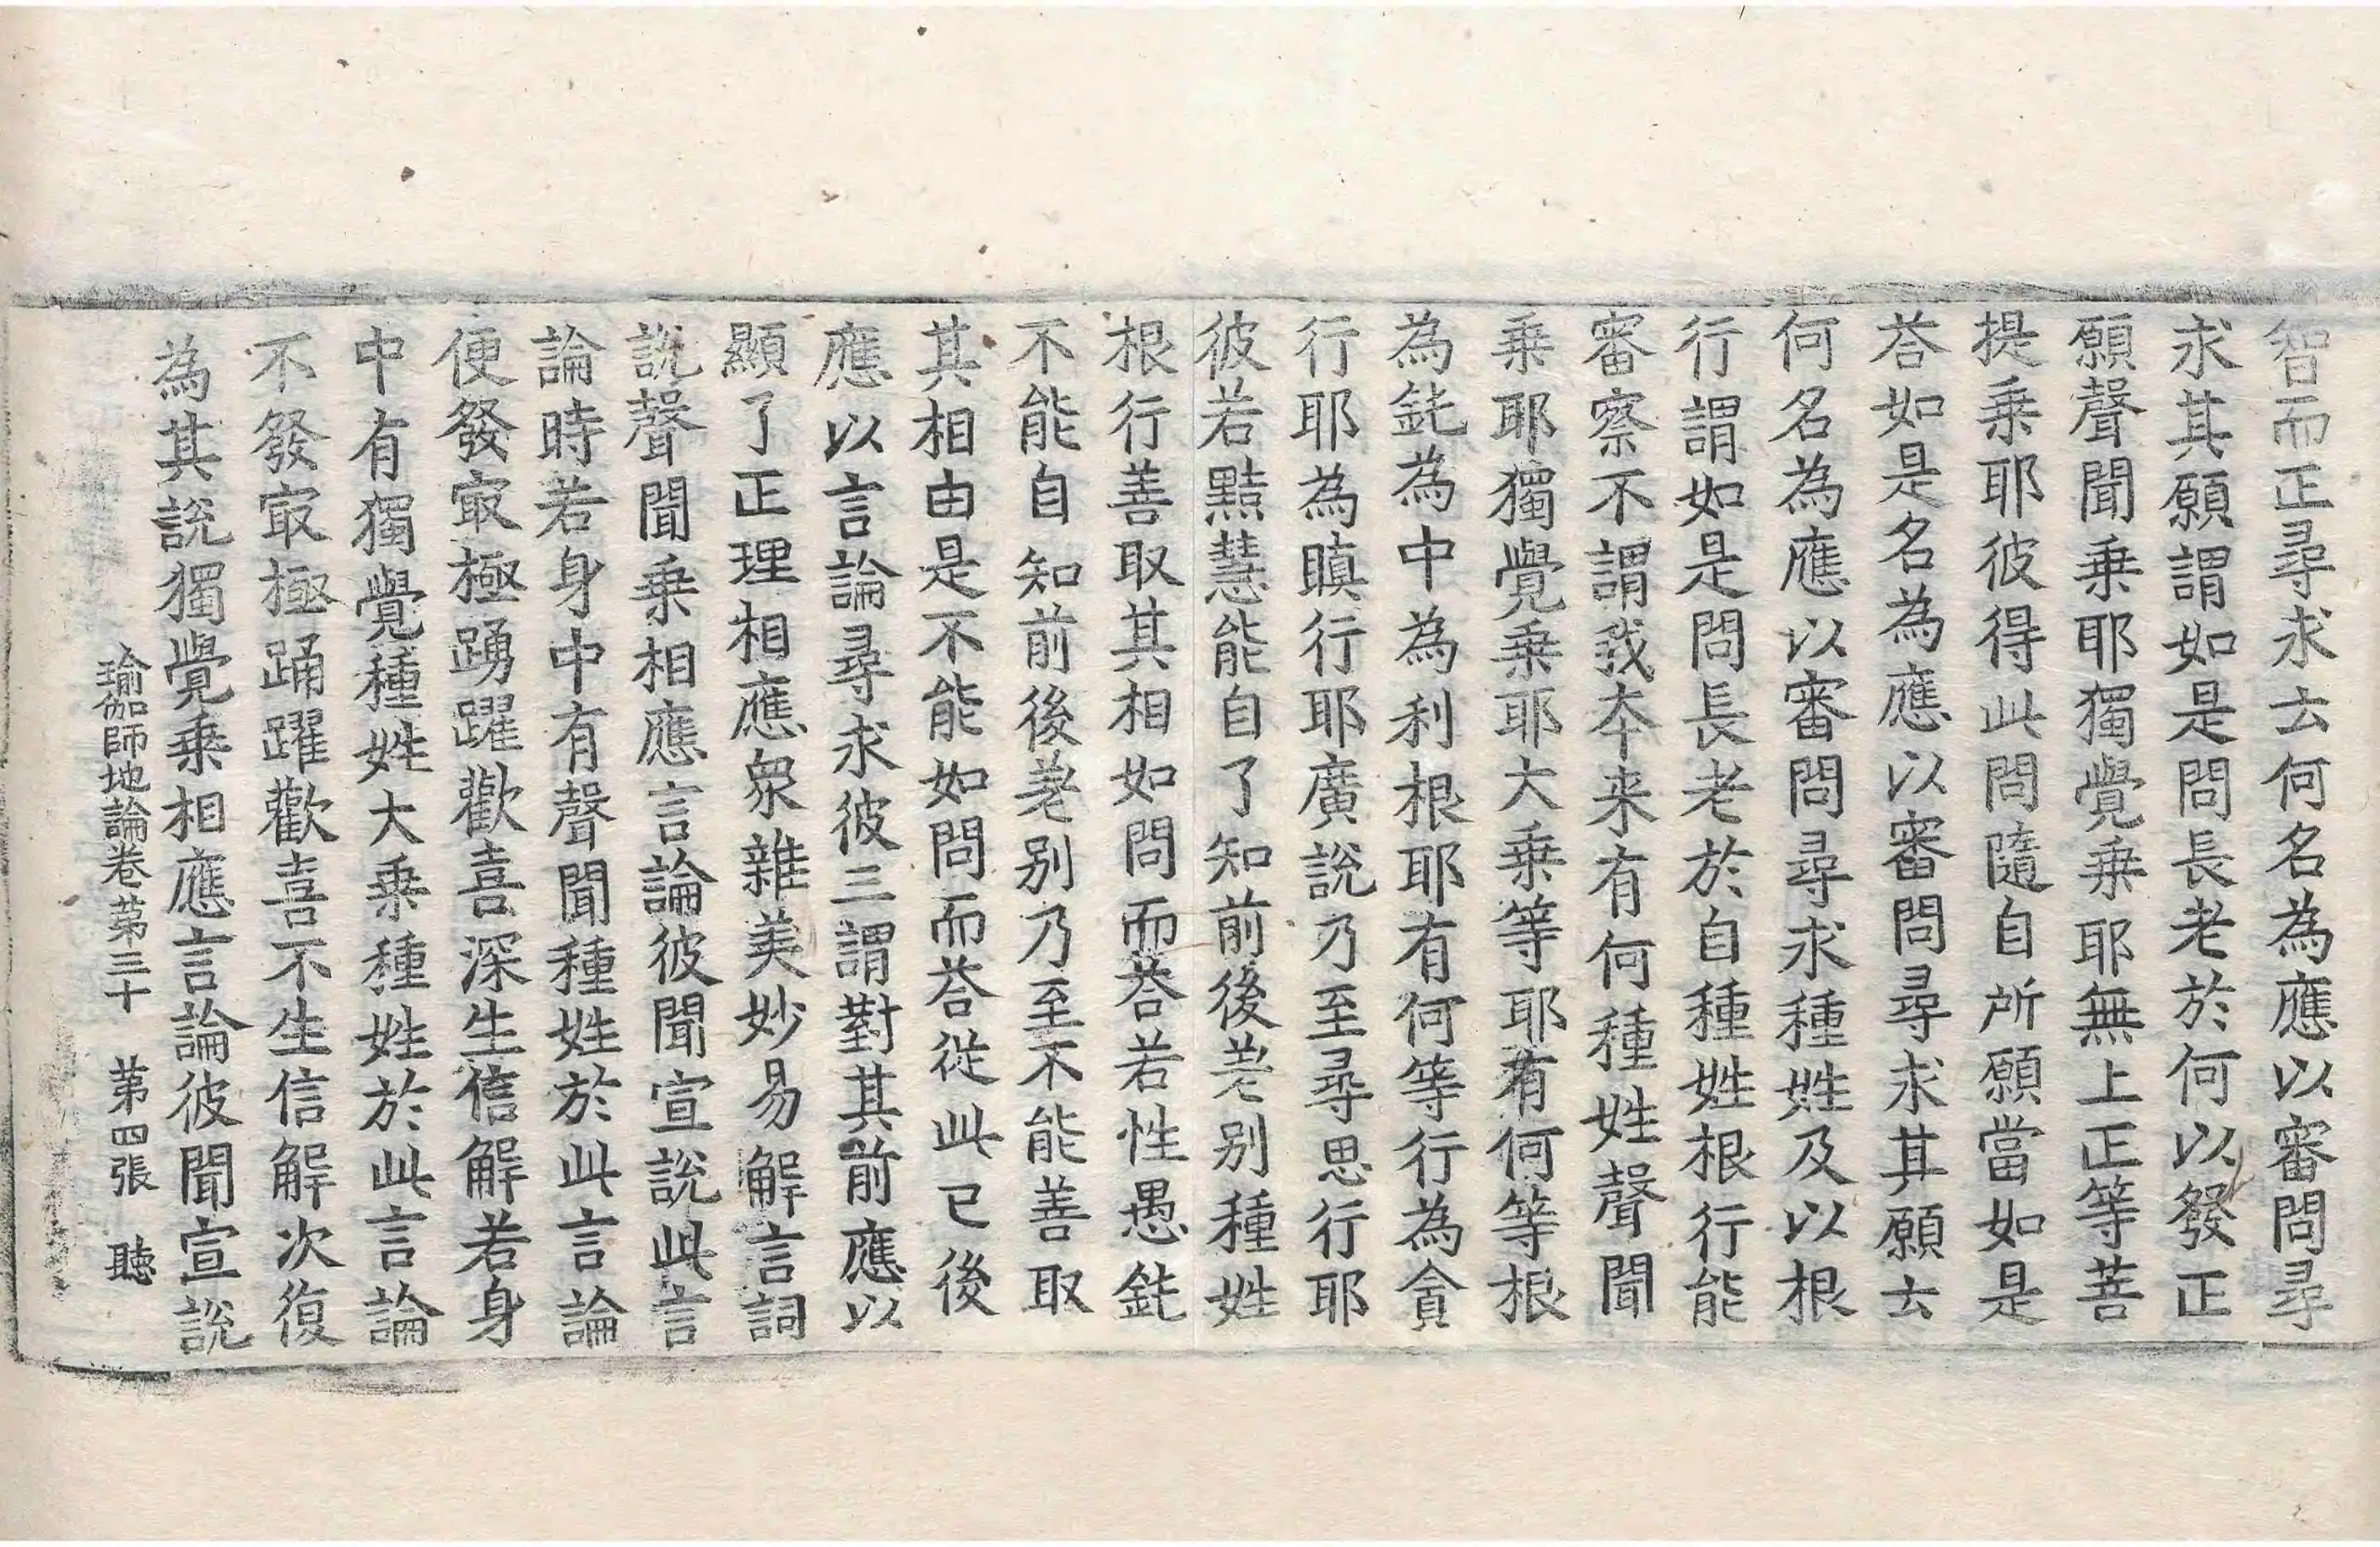 智而正尋求云何名為應以審問尋
求其願謂如是問長老於何以發正
願聲聞乗耶獨覺乗耶無上正等菩
提乗耶彼得此問隨自所願當如是
荅如是名為應以審問尋求其願云
何名為應以審問尋求種姓及以根
行謂如是問長老於自種姓根行能
審察不謂我夲来有何種姓聲聞
乗耶獨覺乗耶大乗等耶有何等根
為鈍為中為利根耶有何等行為貪
行耶為瞋行耶廣說乃至尋思行耶
彼若黠慧能自了知前後差別種姓
根行善取其相如問而荅若性愚鈍
不能自知前後差別乃至不能善取
其相由是不能如問而荅從此已後
應以言論尋求彼三謂對其前應以
顯了正理相應衆雜美妙易解言詞
說聲聞乗相應言論彼聞宣說此言
論時若身中有聲聞種姓於此言論
便發㝡極踴躍歡喜深生信解若身
中有獨覺種姓大乗種姓於此言論
不發㝡極踊躍歡喜不生信解次復
為其說獨覺乗相應言論彼聞宣說
瑜伽師地論卷苐三十　苐四張　聽